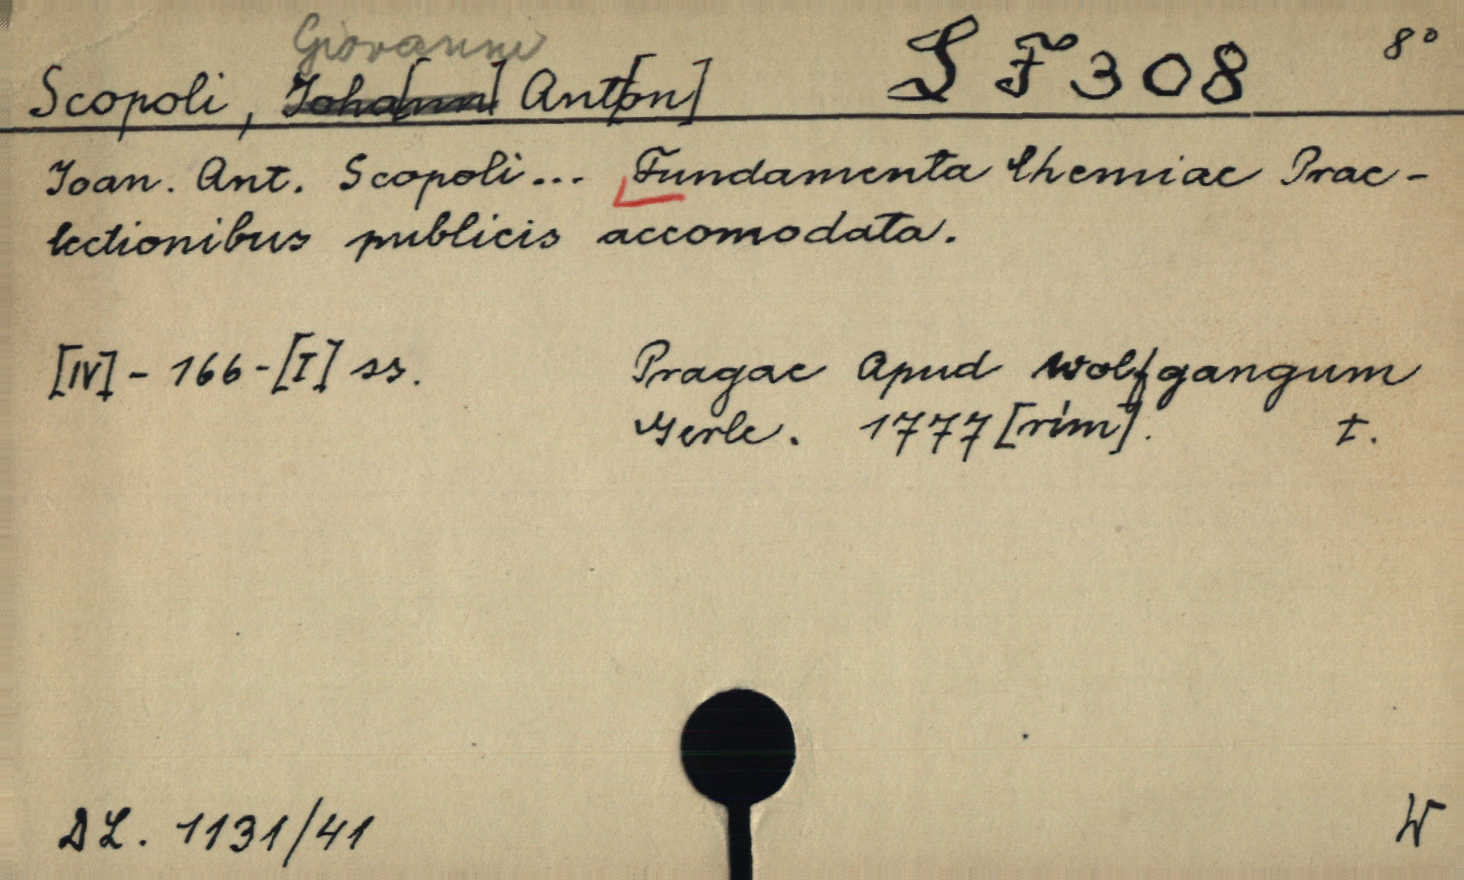 Giovanni
Scopoli, Joha[nn] Ant[on] S F 308 8°
Joan. Ant. Scopoli... Fundamenta Chemiae Prae-
lectionibus publicis accomodata.
[IV] - 166 - [I] ss. Pragae Apud Wolfgangum
Gerle. 1777 [rim]. t.
DL. 1131/41 W